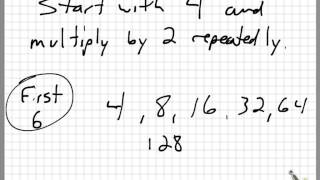 Start with 4 and
multiply by 2 repeatedly.
First
6
4, 8, 16, 32, 64
128